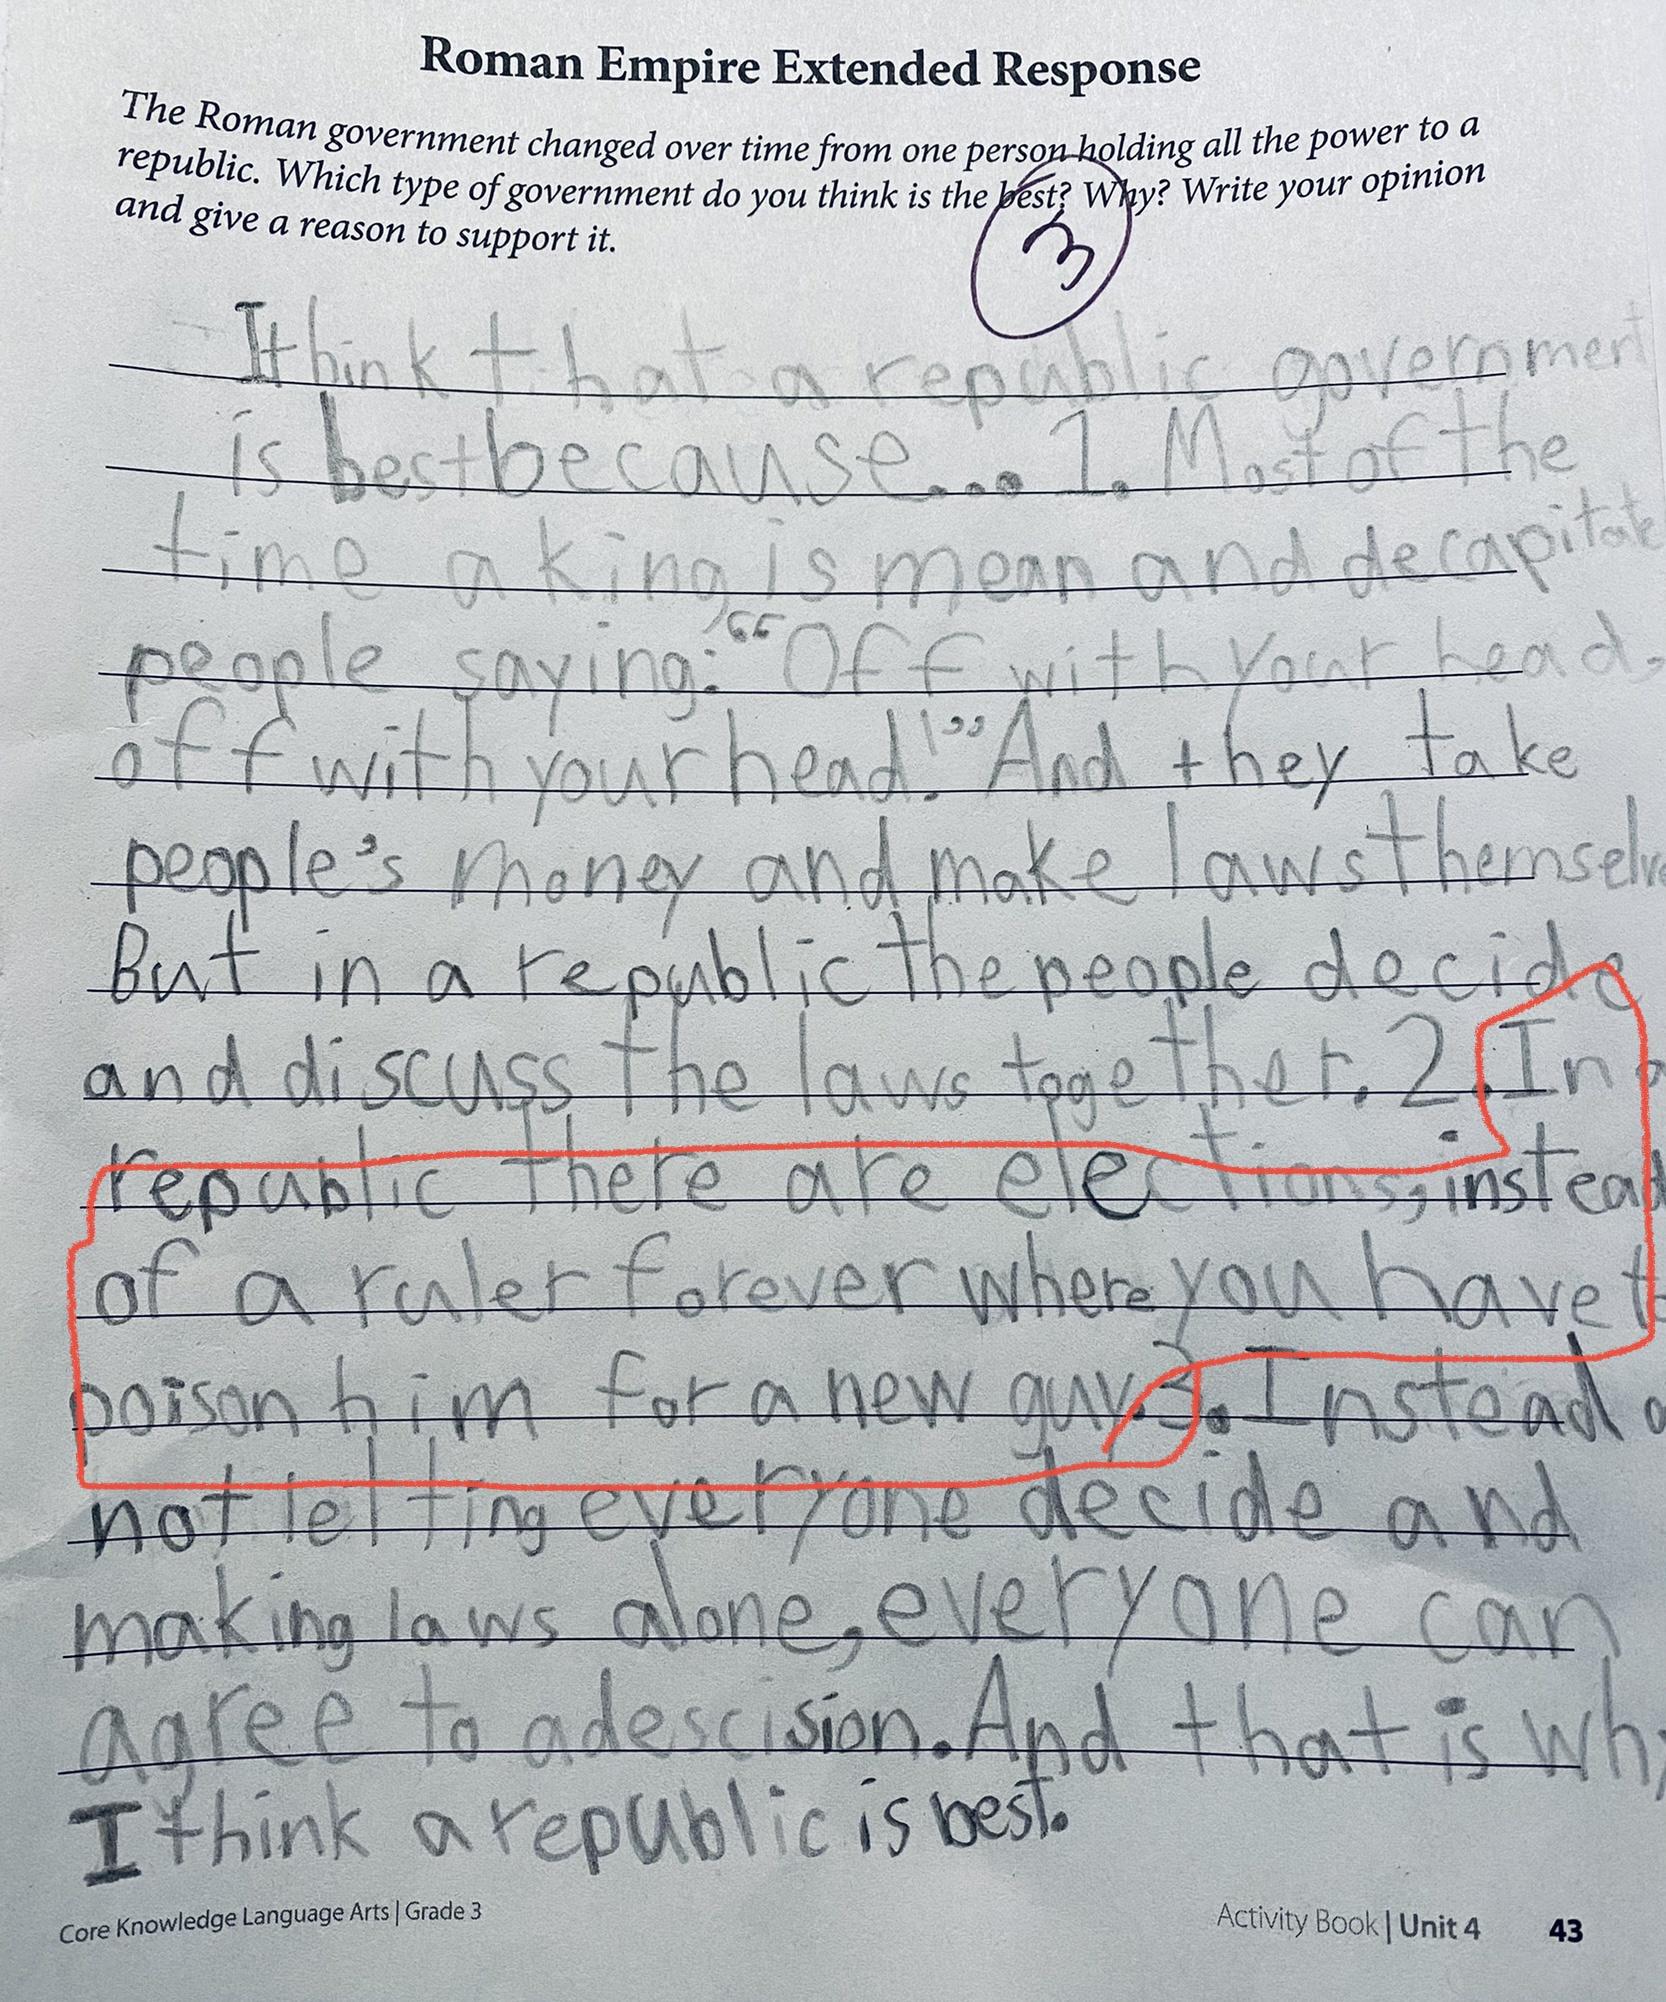 Roman Empire Extended Response
The Roman government changed over time from one person holding all the power to a
republic. Which type of government do you think is the best? Why? Write your opinion
and give a reason to support it.
3
I think that a republic governmen
is best because... 1. Most of the
time a king is mean and decapitate
people saying: "Off with your head,
off with your head!" And they take
people's money and make laws themselve
But in a republic the people decide
and discuss the laws together. 2. In a
republic there are elections, instead
of a ruler forever where you have to
poison him for a new guy. 3. Instead o
not letting everyone decide and
making laws alone, everyone can
agree to a descision. And that is why
I think a republic is best.
Core Knowledge Language Arts | Grade 3
Activity Book | Unit 4 43